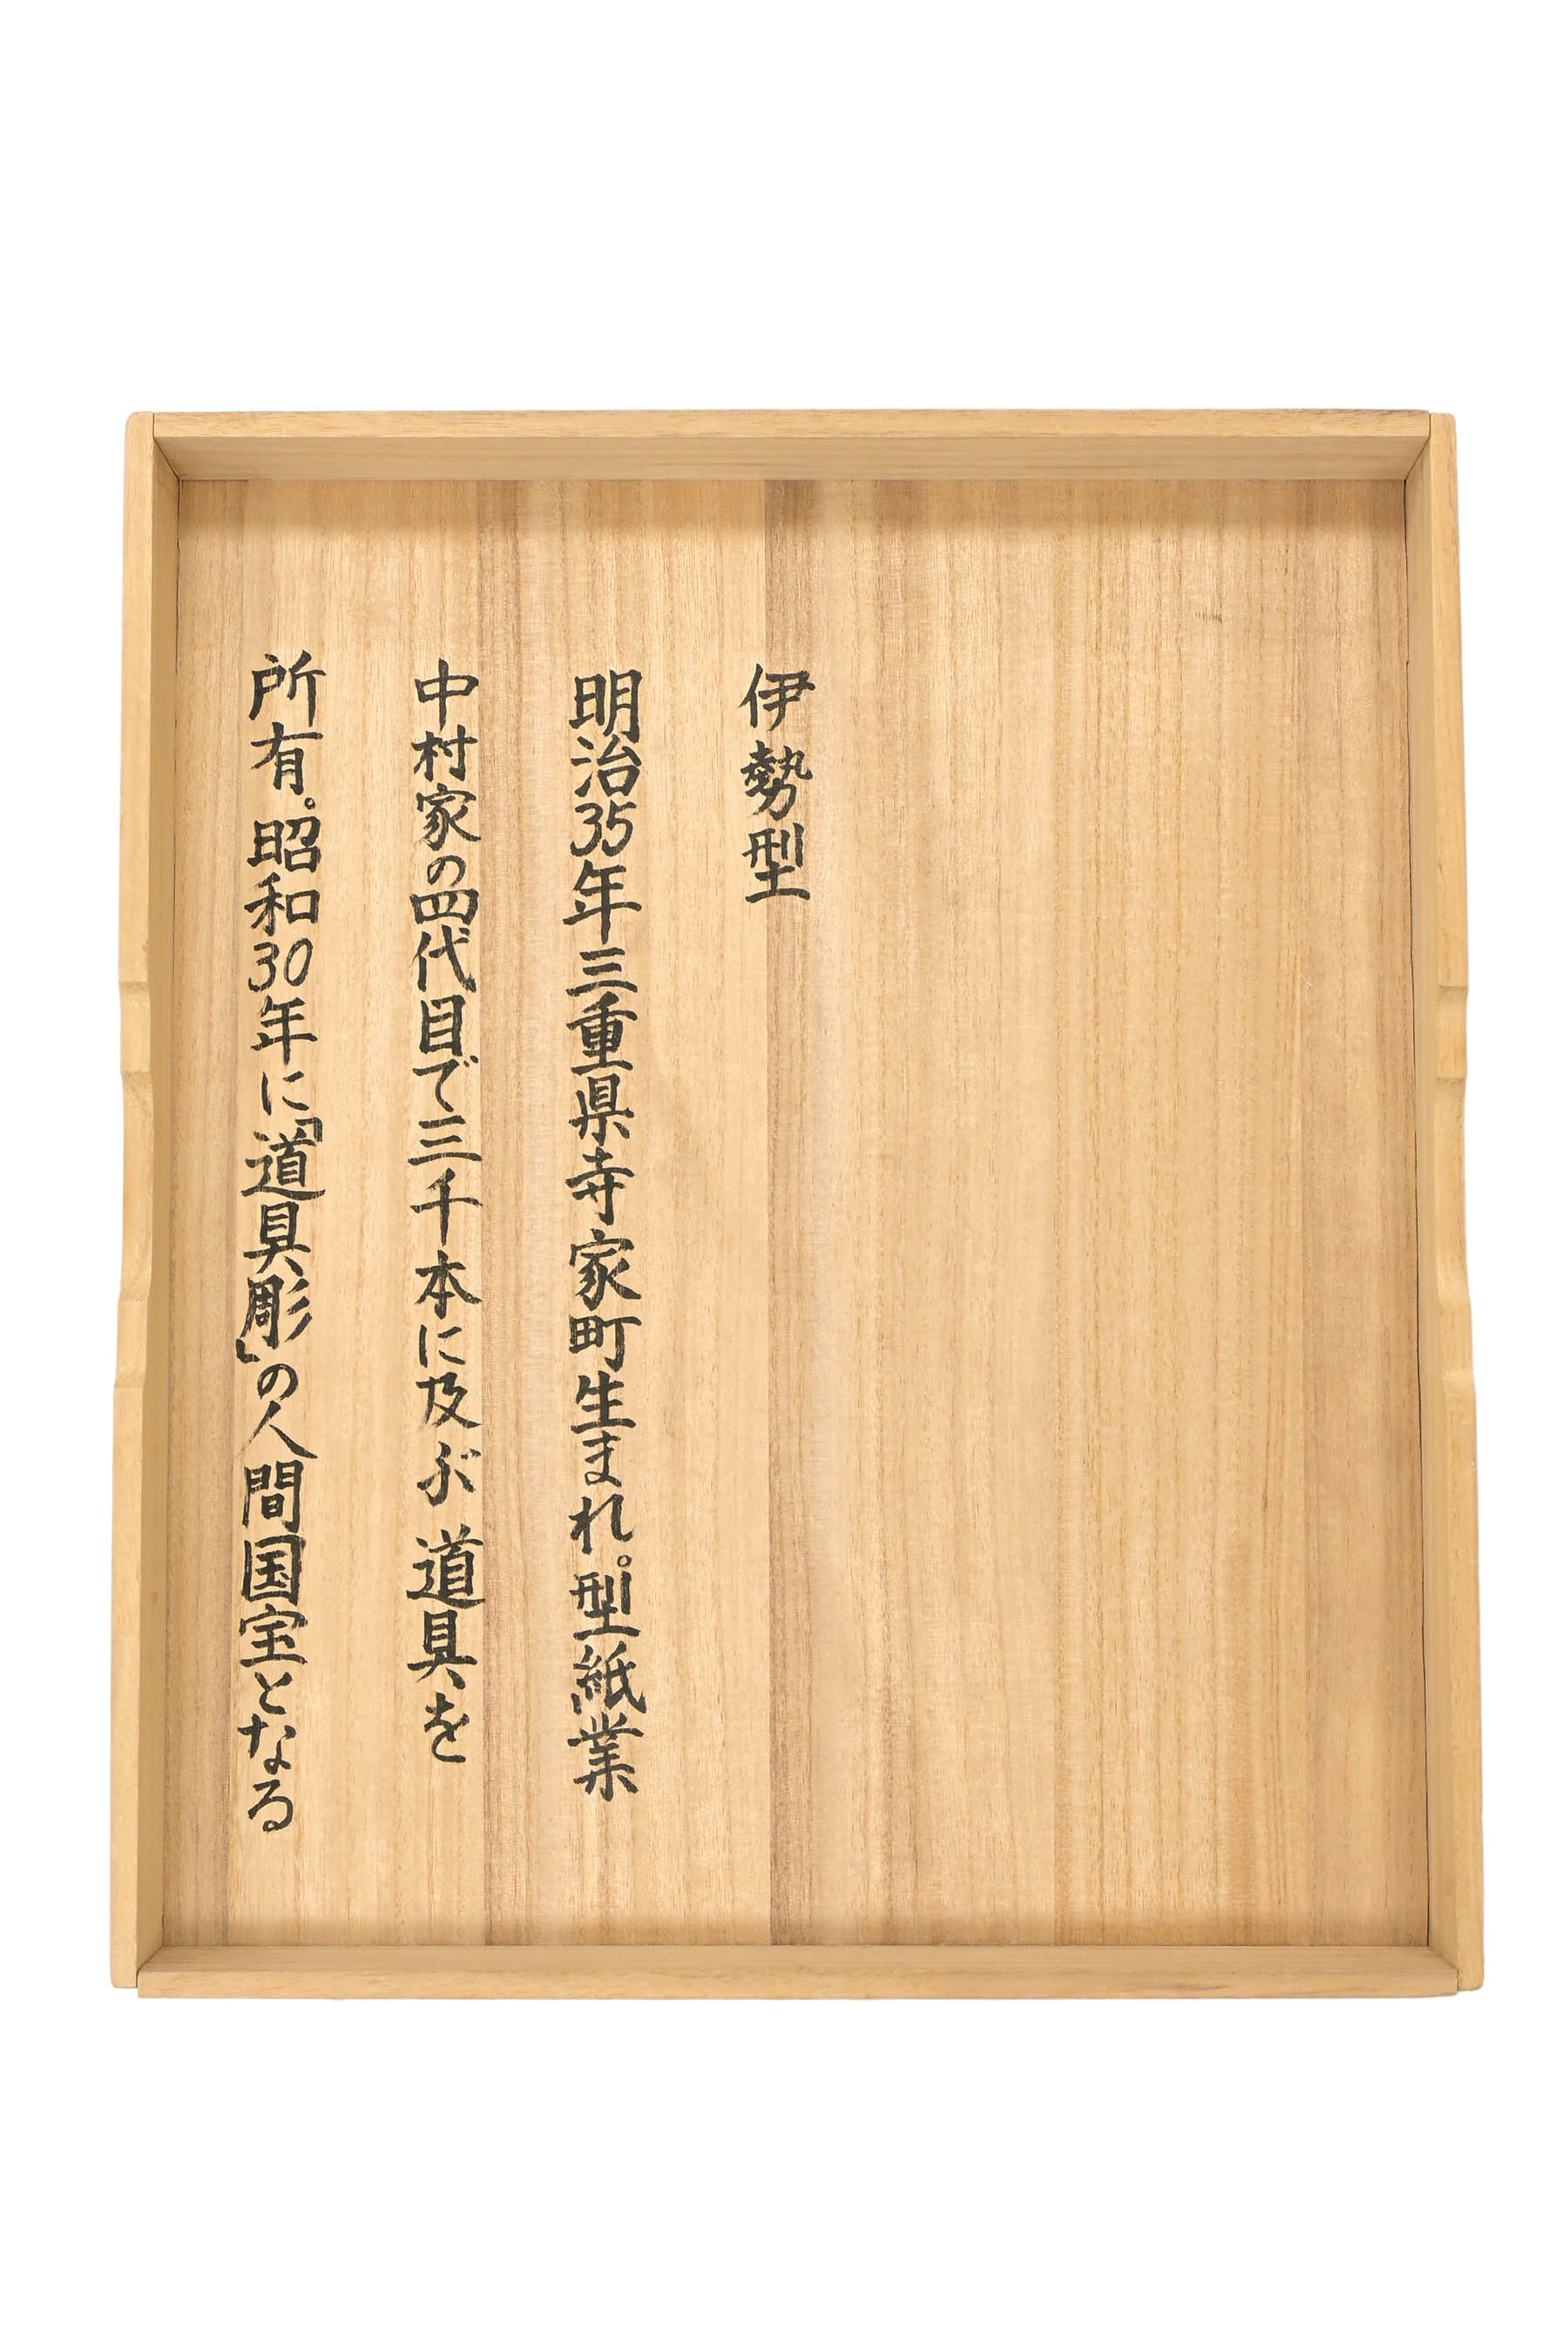 伊勢型
明治35年三重県寺家町生まれ。型紙業
中村家の四代目で三千本に及ぶ道具を
所有。昭和30年に「道具彫」の人間国宝となる